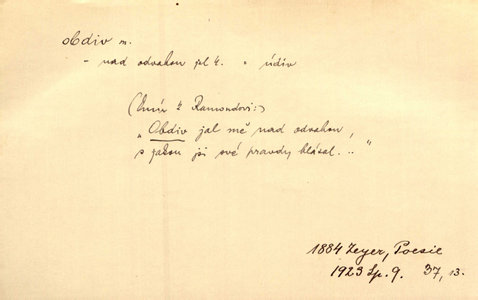 obdiv m.
- nad odvahou pl 4. = údiv
( k Ramondovi:)
„Obdiv jal mě nad odvahou,
s jakou jsi své pravdy hlásal..."
1884 Zeyer, Poesie
1923 Sp. 9. 37, 13.